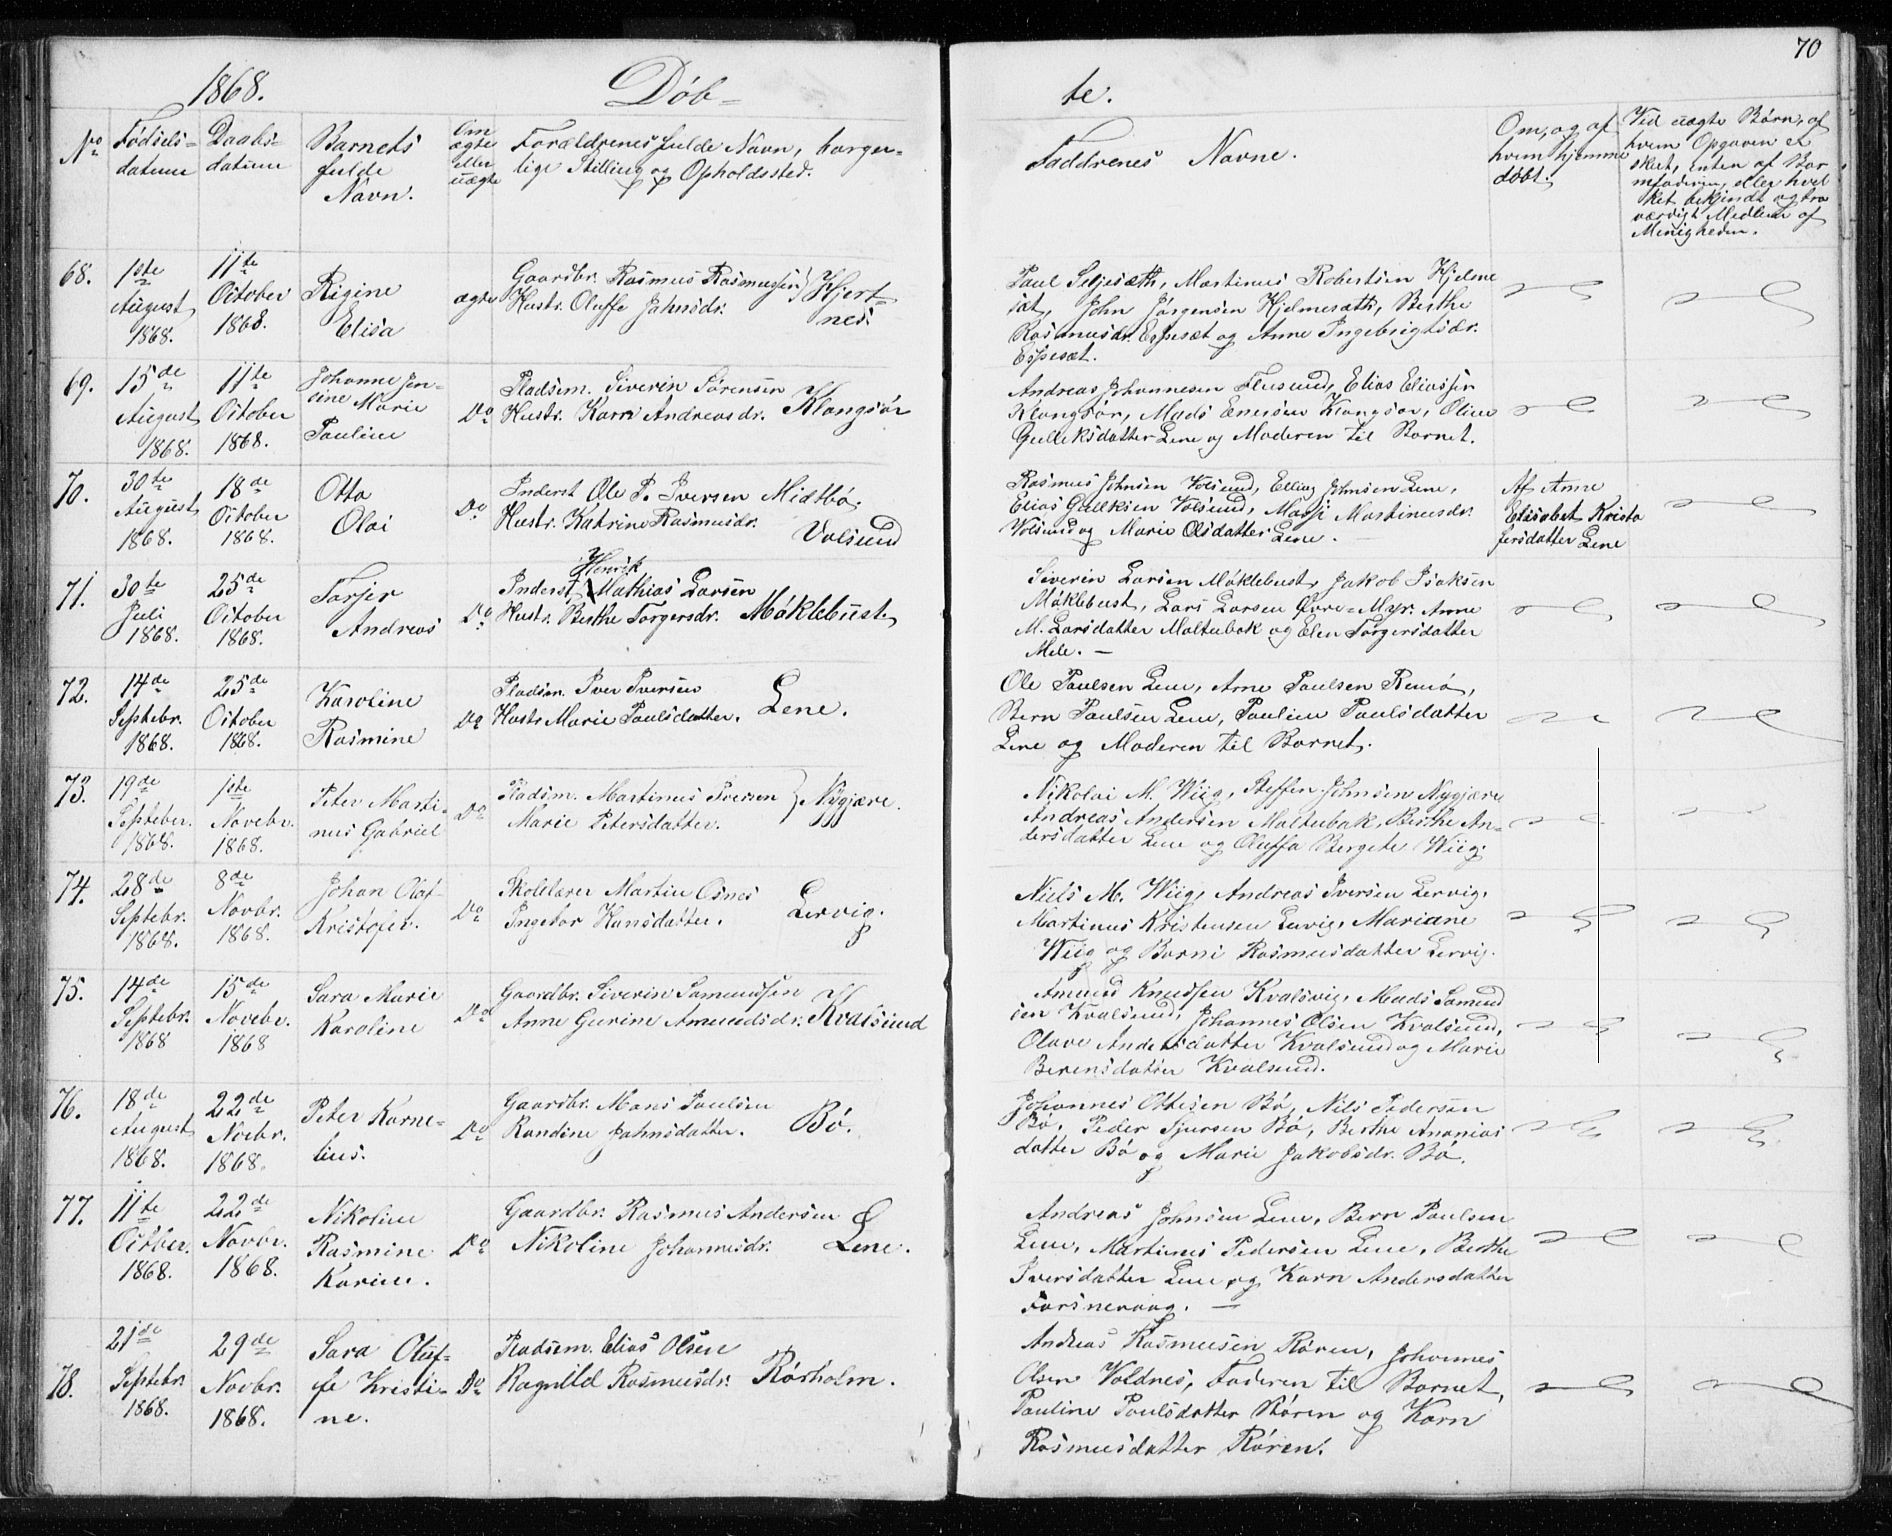 70
1868. Døb= te.
No. Fødsels= datum
Daabs= datum
Barnets fulde Navn.
Om ægte eller uægte
Forældrenes fulde Navn, borger=
lige Stilling og Opholdssted.
Faddrenes Navne.
Om, og af
hvem hjemme
døbt.
Ved uægte Børn, af
hvem Opgaven er
skeet, enten af Bar
mfaderen, eller hvel
ket bekjendt og tro
værdigt Medlem af
Menigheden.
68. 1ste August 1868.
11te October 1868.
Rigine Elisa
ægte
Gaardbr. Rasmus Rasmussen
Hustr. Oluffe Jahnsdr.
Hjert= nes.
Paul Seljesæth, Martinus Robertsen Hjelme
sæt, John Jørgensen Hjelmesæth, Berthe
Rasmusdr. Espesæt og Anne Ingebrigtsdr.
Espesæt.
69. 15de August 1868.
11te October 1868.
Johanne Jen=
sine Marie
Pauline
Do
Pladsm. Siverin Sørensen
Hustr. Karn Andreasdr. Klongsør
Andreas Johannesen Flusund, Elias Eliassen
Klongsør, Mads Enersen Klongsør, Oline
Gulleksdatter Lene og Moderen til Barnet.
70. 30te August 1868.
18de October 1868.
Otto Olai
Do
Inderst Ole P. Iversen Midtbø,
Hustr. Katrine Rasmusdr.
Volsund
Rasmus Johnsen Volsund, Elling Johnsen Lene,
Elias Gulleksen Volsund, Massi Martinusdr.
Volsund og Marie Olsdatter Lene. —
Af Anne
Elisabet Kristo
fersdatter Lene
71. 30te Juli 1868.
25de October 1868.
Torjer Andreas
Do
Henrik
Inderst Mathias Larsen
Hustr. Berthe Torgersdr. Møklebust
Siverin Larsen Møklebust, Jakob Isaksen
Møklebust, Lars Larsen Øvre=Myr. Anne
M. Larsdatter Moltubak og Elen Torgersdatter
Mele. —
72. 14de Septebr. 1868.
25de October 1868.
Karoline Rasmine
Do
Pladsm. Iver Iversen
Hustr Marie Paulsdatter. Lene.
Ole Paulsen Lene, Arne Paulsen Remø,
Bern Paulsen Lene, Pauline Paulsdatter
Lene og Moderen til Barnet.
73. 19de Septeber. 1868.
1ste Novebr. 1868.
Peter Marti=
nus Gabriel
Do
Pladsm. Martinus Iversen
Marie Petersdatter.
Nygjære.
Nikolai M. Wiig, Steffen Johnsen Nygjære
Andreas Andersen Moltubak, Berthe An=
dersdatter Lene og Oluffa Bergete Wiig.
74. 28de Septebr. 1868.
8de Novbr. 1868.
Johan Olaf
Kristofer.
Do
Skolelærer Martin Osnes
Ingebor Hansdatter.
Lervig.
Niels M. Wiig, Andreas Iversen Lervig.
Martinus Kristensen Lervig, Mariane
Wiig og Barni Rasmusdatter Lervig.
75. 14de Septebr. 1868
15de Novebr. 1868
Sara Marie Karoline
Do
Gaardbr. Siverin Samundsen
Anne Gurine Amundsdr. Kvalsund
Amund Knudsen Kvalsvig, Mads Samund
sen Kvalsund, Johannes Olsen Kvalsund,
Olave Andersdatter Kvalsund og Marie
Berensdatter Kvalsund.
76. 18de August 1868.
22de Noebr. 1868.
Peter Korne=
lius.
Do
Gaardbr. Mons Paulsen
Randine Jahnsdatter. Bø.
Johannes Ottesen Bø, Nils Pedersen
Bø, Peder Sjursen Bø, Berthe Ananias
datter Bø og Marie Jakobsdr. Bø.
77. 11te Octber. 1868.
22de Novbr. 1868.
Nikoline Rasmine Karine.
Do
Gaardbr. Rasmus Andersen
Nikoline Johannesdr. Lene.
Andreas Johnsen Lene, Bern Paulsen
Lene, Martinus Pedersen Lene, Berthe
Iversdatter Lene og Karn Andersdatter
Forsnevaag. —
78. 21de Septebr. 1868.
29de Novbr. 1868.
Sara Oluf=
fe Kristi=
ne.
Do
Pladsm. Elias Olsen
Ragnild Rasmusdr. Rørholm.
Andreas Rasmusen Røren, Johannes
Olsen Voldnes, Faderen til Barnet,
Pauline Paulsdatter Røren og Karn
Rasmusdatter Røren.